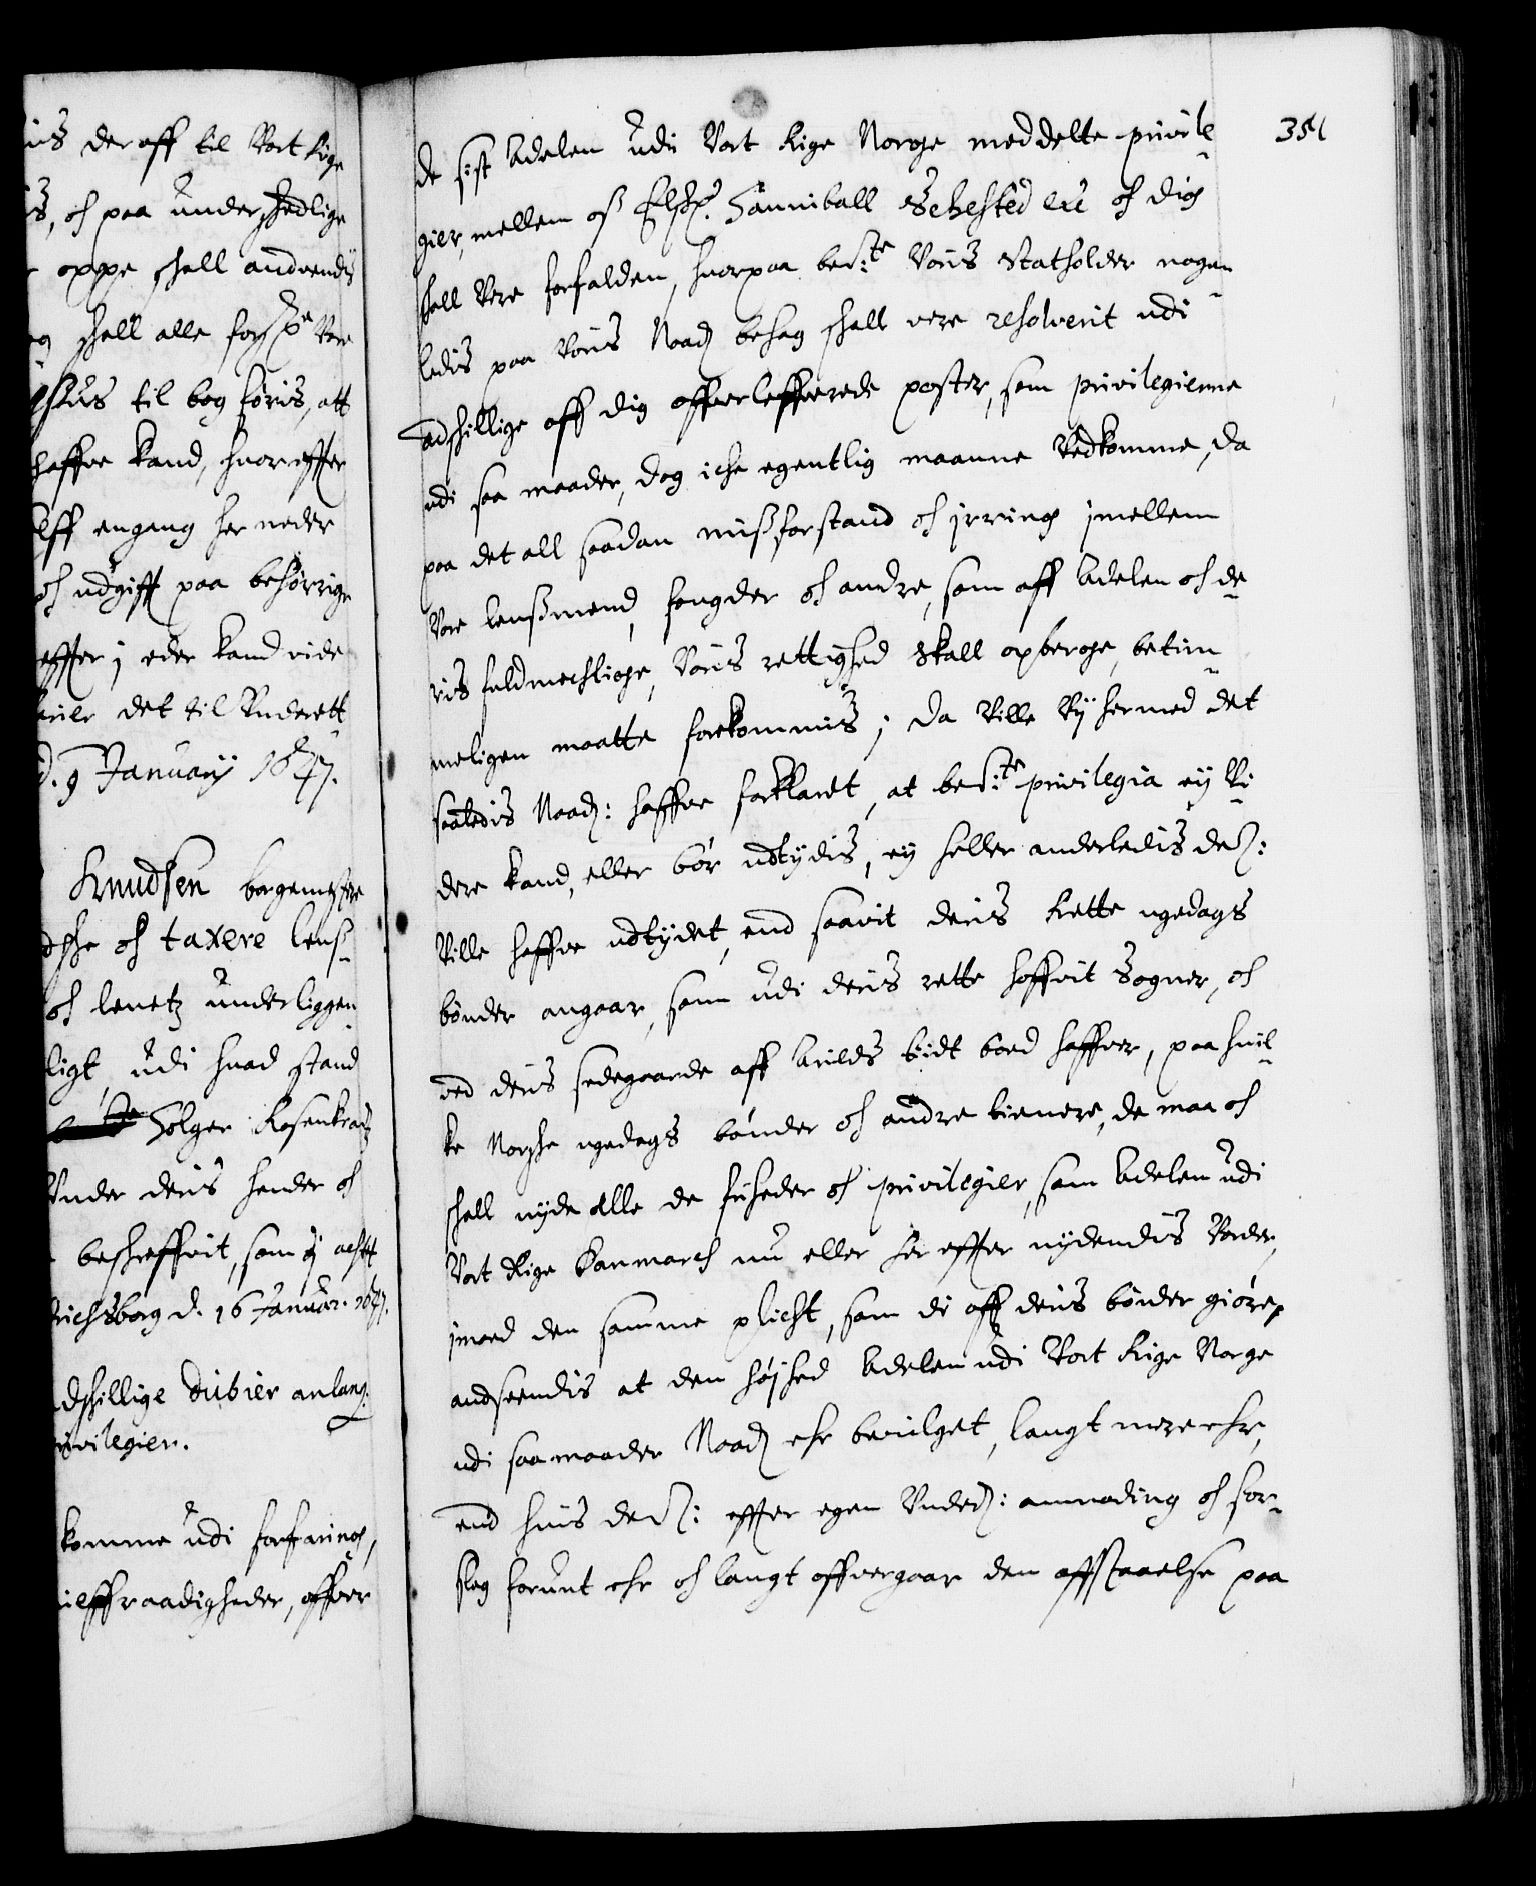 is deroff til Vort Rige
s, och paa underskedlige
oppe skall anduendis
og skall alle forskne Vare
shus til bog føris, att
haffue kand, huor effter
lff engang her neder
och udgifft paa behørrige
effter i eder kand ride
det til Underrett
d. 9 Januarij 1647.
Knudsen borgemester
och taxere lens-
och lenetz underliggen-
ligt, udi huad stand
Holger Rosenkrantz
Under deris hender och
beskreffuit, som i achtt
richsborg d. 16 Januar. 1647.
adskillige dubier anlang:
privilegier.
komme udi forfaring,
raadigheder, offuer
351
de sist Adelen udi Vort Rige Norge meddelte privile-
gier, mellem os Elsk. Hanniball Sehested etc och dig
skall Vere forfalden, huorpaa bete. Voris Statholder nogen-
ledis paa Voris Naad: behag skall vere resolverit udi
adskillige aff dig offuerleffuerede poster, som privilegierne
udi saa maader, dog iche egentlig maanne Vedkomme, da
paa det all saadan misforstand och irring imellem
Vore lensmend, fougder och andre, som aff Adelen och de-
ris fuldmechtige, Voris rettighed skall opberge, betim-
meligen maatte forekommis; da Ville Vij hermed det
saaledis Naad: haffue forklaret, at bete. privilegia ey Vi-
dere kand, eller bør udtydis, ey heller anderledis des:
Ville haffue udtydet, end saavit deris Rette ugedags
bønder angaar, som udi deris rette hoffuit Sogner, och
ved deris sedegaarde aff Arilds tiidt boed haffuer, paa huil-
ke Norshe ugedags bønder och andre tienere, de maa och
skall nyde alle de friheder och privilegier, som Adelen udi
Vort Rige Danmarch nu eller her effter nydendis Vorder,
imod den samme plicht, som di aff deris bønder giøre,
andseendis at den høyhed Adelen udi Vort Rige Norge
udi saa maader Naad: ehr beuilget, langt mere ehr,
end huis des: effter egen Underd: anmoding och for-
slag forunt ehr och langt offuergaar den affstaaelse paa